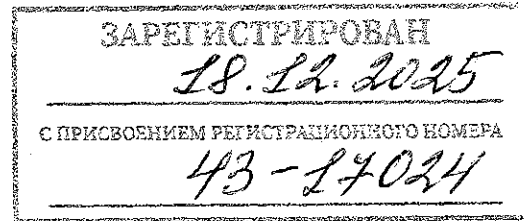 ЗАРЕГИСТРИРОВАН
18.12.2025
С ПРИСВОЕНИЕМ РЕГИСТРАЦИОННОГО НОМЕРА
43-17024